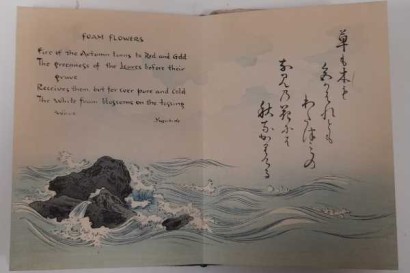 FOAM FLOWERS
Fire of the Autumn turns to Red and Gold
The greenness of the leaves before their
grave
Receives them but for ever pure and Cold
The white foam blossoms on the tossing
wave
Yasuhide
草も木も
色かはれとも
わたつうみの
なみの花にそ
秋なかりける